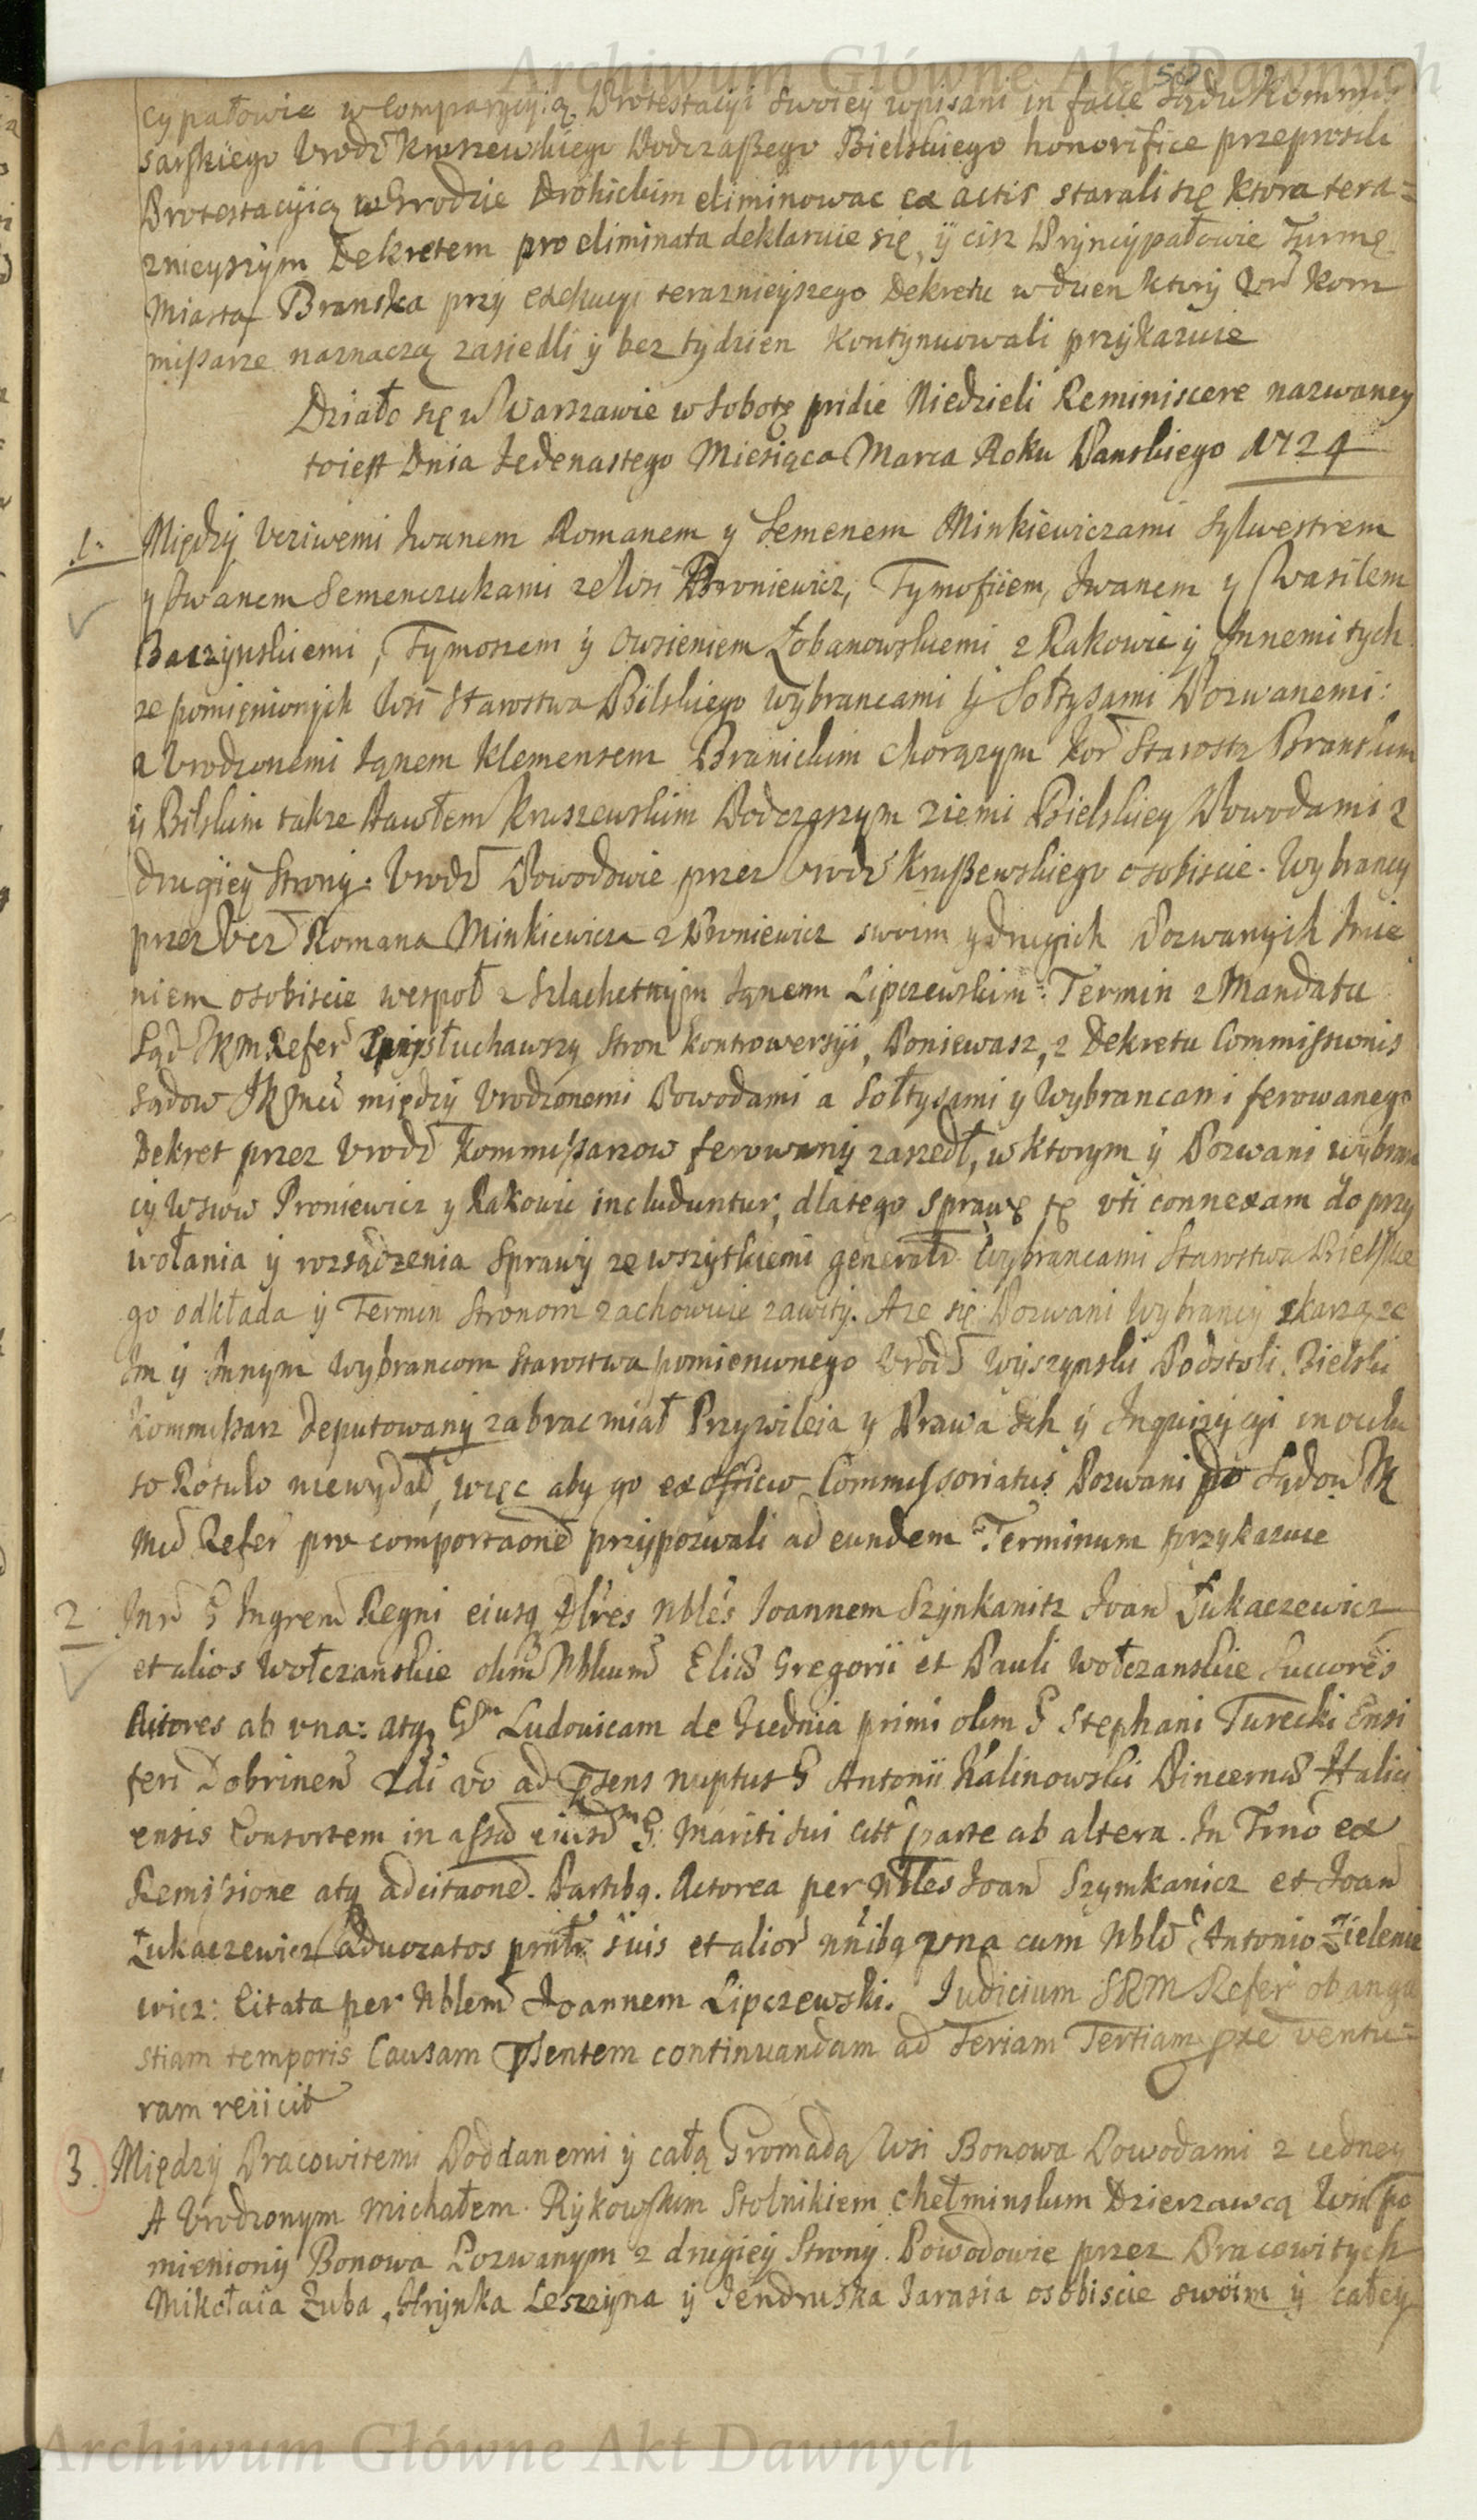 Archiwum Główne Akt Dawnych
50
cypałowie w Comparycyią Protestacyi swoiey wpisani in facie Sądu Kommis
sarskiego Urodz Kruszewskiego Podczaßego Bielskiego honorifice przeprosili
Protestacyią w Grodzie Drohickim eliminowac ex actis starali się ktora tera=
znieyszym Dekretem pro eliminata deklaruie się, ÿ cisz Pryncypałowie Turmę
Miasta Branska przy exekucyi teraznieyszego Dekretu w dzien ktory Ur Kom
mißarze naznaczą zasiedli ÿ bez tydzien kontynuowali przykazuie
Działo się w Warszawie w Sobotę pridie Niedzieli Reminiscere nazwaney
toiest Dnia Jedenastego Miesiąca Marca Roku Panskiego 1724
1. Między Ucziwemi Iwanem Romanem y Semenem Minkiewiczami Sylwestrem
y Iwanem Semenczukami ze Wsi Proniewicz, Tymofiiem, Iwanem y Wasilem
Baczynskiemi, Tymoszem ÿ Owsieniem Łobanowskiemi z Rakowic ÿ Innemi tych
ze pomięnionych Wsi Starostwa Bilskiego Wybrancami ÿ Sołtysami Pozwanemi:
a Urodzonemi Janem Klemensem Branickim Chorązym Kor Starostą Branskim
ÿ Bilskim takze Pawłem Kruszewskim Podczaszym ziemi Bielskiey Powodami z
drugiey Strony. Urodz Powodowie przez Urodz Krußewskiego osobiscie. Wybrancy
przez Ucz Romana Minkiewicza z Proniewicz swoim y drugich Pozwanych Imie
niem osobiscie wespoł z Szlachetnym Janem Lipczewskim. Termin z Mandatu
Sąd JKM Refer Przysłuchawszy Stron kontrowersyi, Poniewasz, z Dekretu Commissionis
Sądow JKMci między Urodzonemi Powodami a Sołtysami y Wybrancami ferowanego
Dekret przez Urodz Kommißarzow ferowany zaszedł, w ktorym ÿ Pozwani wybran
cy Wsiow Proniewicz y Rakowic includuntur, dlatego Sprawę tę uti connexam do przy
wołania ÿ rozsądzenia Sprawy ze wszytkiemi generalr Wybrancami Starostwa Bielskie
go odkłada ÿ Termin Stronom zachowuie zawity. A ze się Pozwani Wybrancy skarzą ze
Im ÿ Innym Wybrancom Starostwa pomienionego Urodz Wyszynski Podstoli Bielski
Kommißarz deputowany zabrac miał Przywileia y Prawa Ich ÿ Inquizycyi in oculu
to Rotulo niewydał, więc aby go ex officio Commissoriatus Pozwani do Sądow JK
Mci Refer pro comportaone przypozwali ad eundem Terminum przykazuie
2. Inr G Ingrem Regni eiusq Dlres Nbles Joannem Szynkanitz Joan Łukaczewicz
et alios Wołczanskie olim Nblium Eliæ Gregorii et Pauli Wołczanskie Succores
Actores ab una: atq Gsm Ludovicam de Giednia primi olim G Stephani Turecki Ensi
feri Dobrinen 2di vo ad psens nuptus G Antonii Kalinowski Pincernæ Halici
ensis Consortem in assa eiusd G: Mariti sui Citt parte ab altera. In Trno ex
Remissione atq adcitaone. Partibq. Actorea per Nbles Joan Szymkanicz et Joan
Łukaczewicz advocatos suis et alior nnibq una cum Nbli Antonio Zielenie
wicz: Citata per Nblem Joannem Lipczewski. Judicium SRM Refer ob angu
stiam temporis Causam Psentem continuandam ad Feriam Tertiam pxe ventu=
ram reiicit
3. Między Pracowitemi Poddanemi ÿ całą Gromadą Wsi Bonowa Powodami z iedney
A Urodzonym Michałem Rykowskim Stolnikiem Chełminskim Dzierzawcą Wsi po
mieniony Bonowa Pozwanym z drugiey Strony. Powodowie przez Pracowitych
Mikołaia Zuba, Hrynka Leszzyna ÿ Jendruska Jarasia osobiscie swoim ÿ całey
Archiwum Główne Akt Dawnych